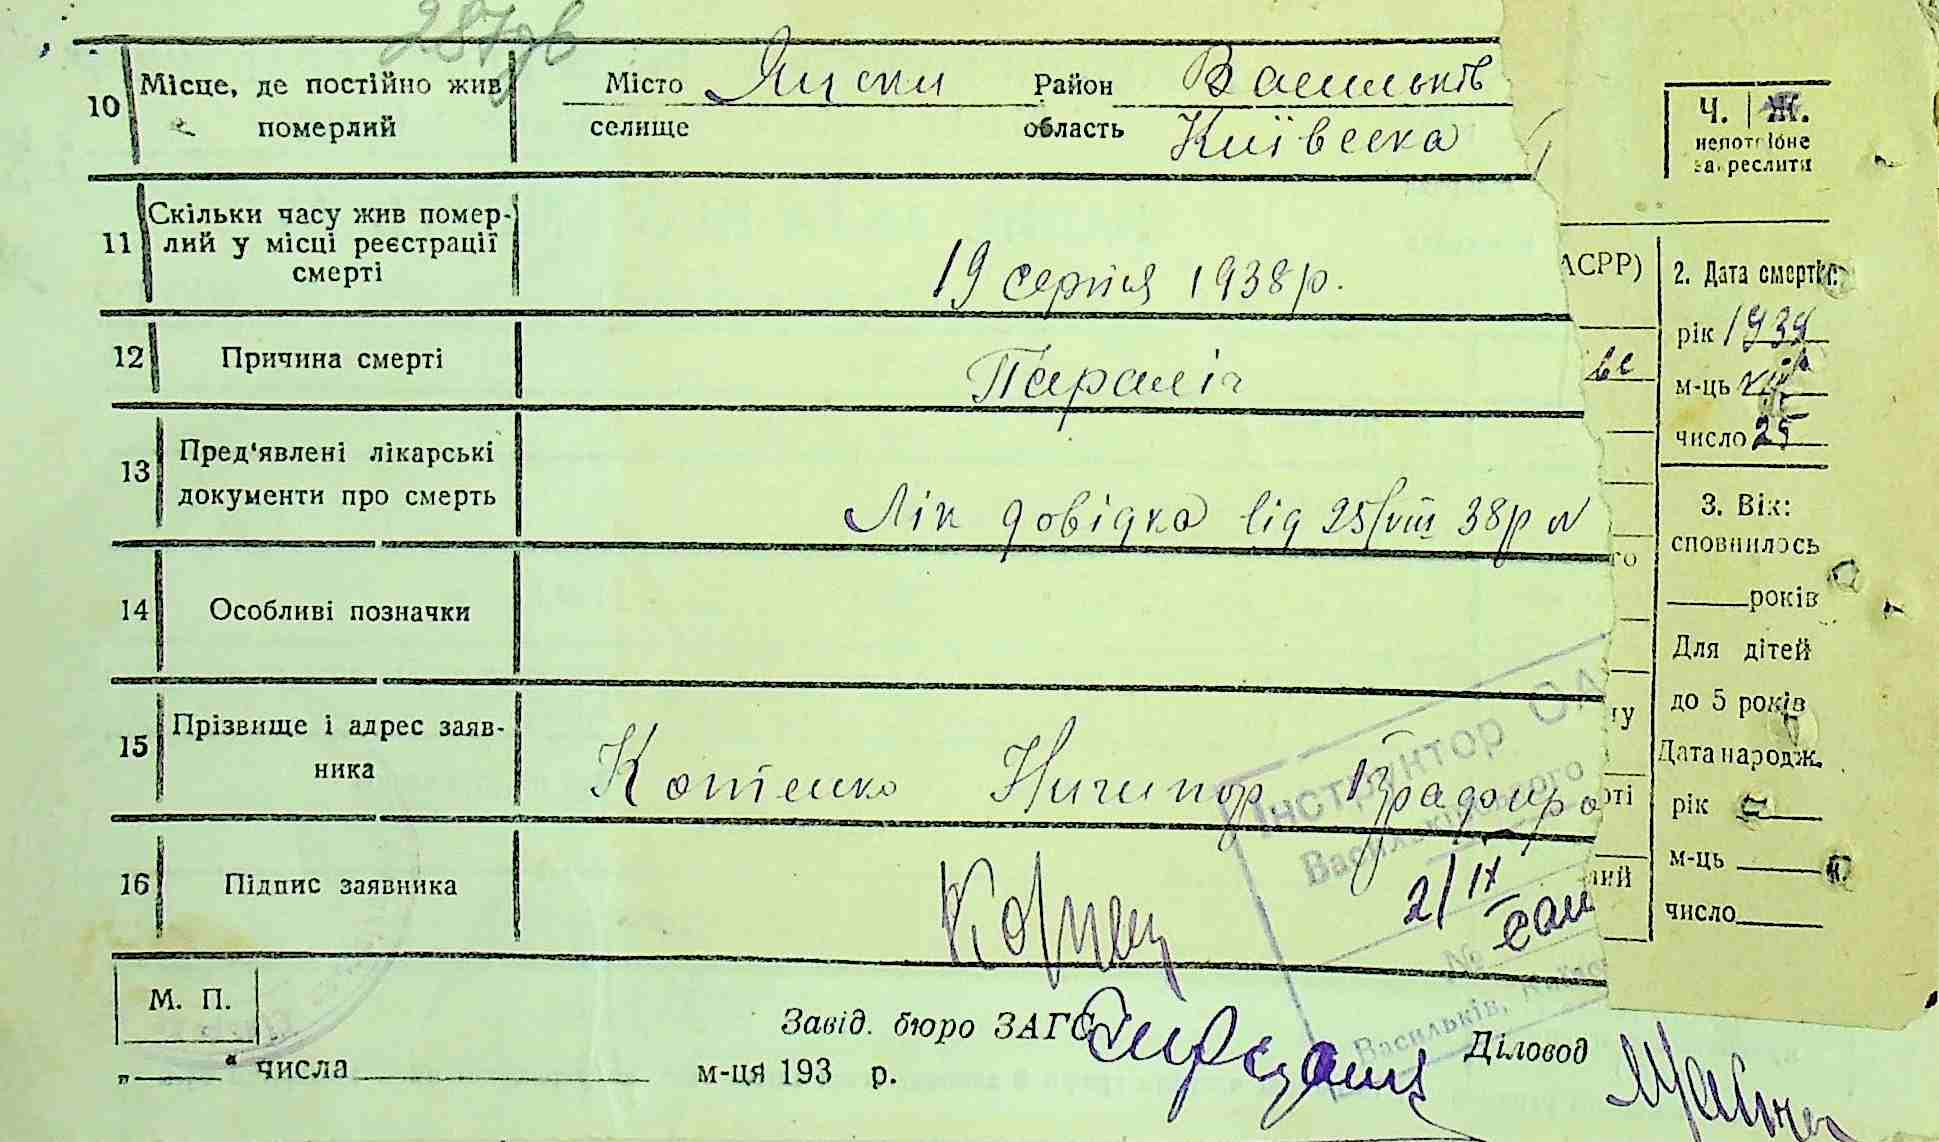 10 Місце, де постійно жив померлий
Місто
селище
Район Васильків
область Київсска
11 Скільки часу жив помер-
лий у місці реєстрації
смерті
19 серпня 1938 р.
12 Причина смерті
Параліч
13 Пред'явлені лікарські
документи про смерть
Лік довідка від 25/VIII 38р N
14 Особливі позначки
15 Прізвище і адрес заяв-
ника
Котенко Ничипор
16 Підпис заявника
2/IX
М. П.
„ “ числа м-ця 193 р.
Завід. бюро ЗАГС
Діловод
Інструктор
Васильківського
№
Васильків,
Ч. | Ж.
непотрібне
закреслити
АСРР)
го
ту
рті
лий
2. Дата смерті:
рік 1938
м-ць VIII
число 25
3. Вік:
сповнилось
років
Для дітей
до 5 років
Дата народж.
рік
м-ць
число